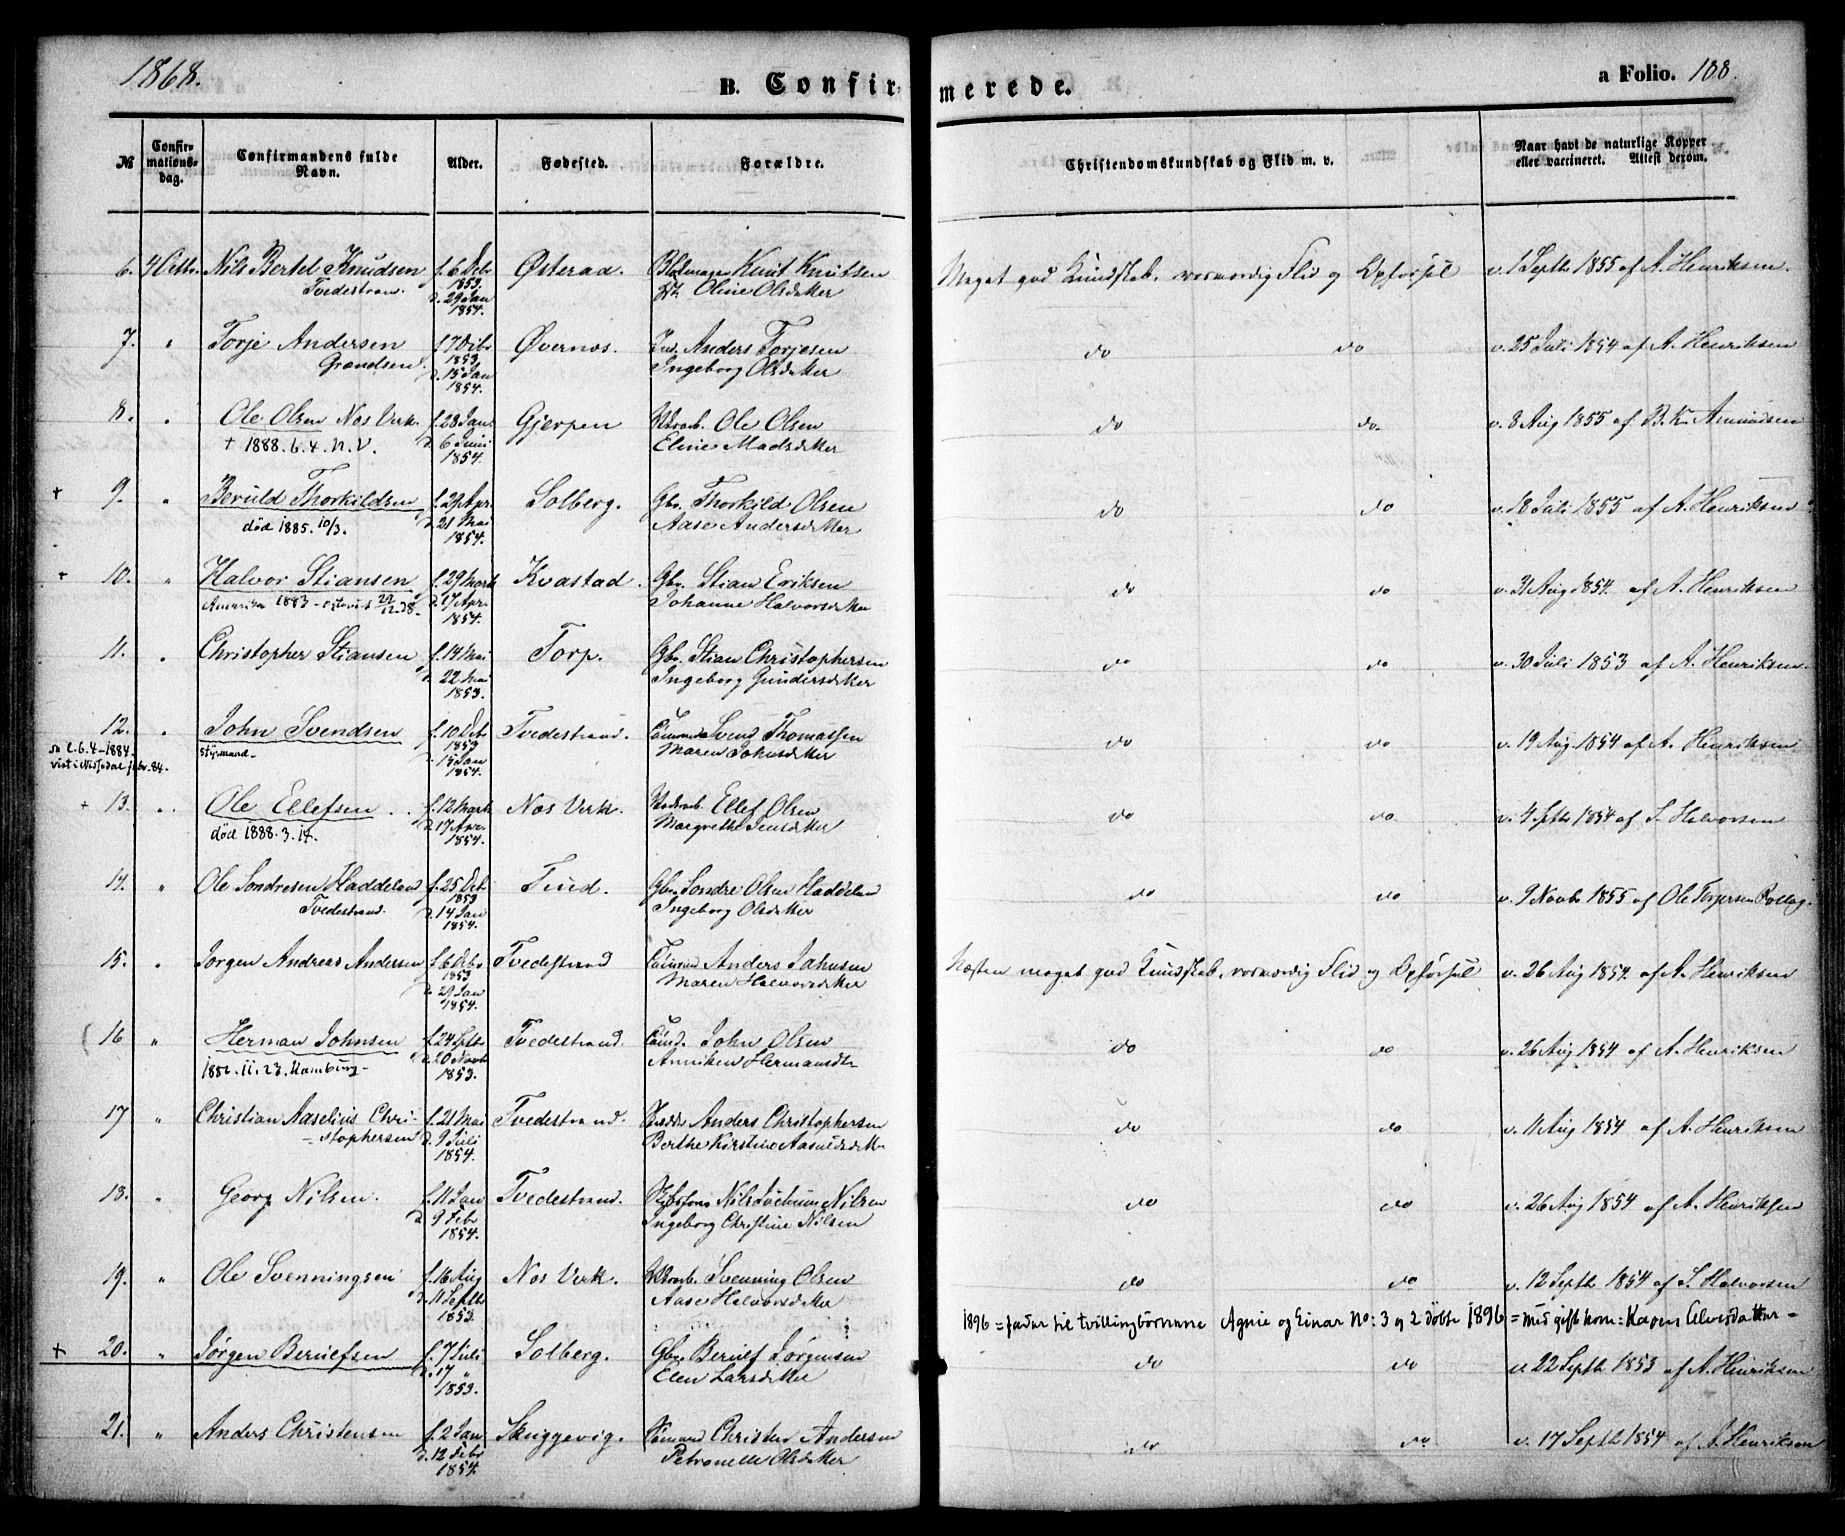 1868.
B. Confirmerede.
a Folio. 188.
№
Confirmationsdag.
Confirmandens fulde Navn.
Alder.
Fødested.
Forældre.
Christendomskundskab og Flid m. v.
Naar havt de naturlige Kopper eller vaccineret. Attest derom.
6. 4 Octbr. Nils Bertel Knudsen f. 6 Debr Østeraad. Knut Knutsen Meget god Kundskab, rosværdig Flid og Opførsel v. 1 Septb 1855 af A. Henriksen.
Tvedestran. 1853. Oline Olsdatter
d. 29 Jan
1854.
7. " Torje Andersen f. 7 Debr Øvernes. Anders Torjesen do do v. 25 Juli 1854 af A. Henriksen
Grændsen. 1853 Ingeborg Olsdatter
d. 15 Jan
1854.
8. " Ole Olsen Nes Verk f. 28 Jan. Gjerpen Ole Olsen do do v. 8 Aug 1855 af B. K. Amundsen
+ 1888. 6. 4. N. V. d. 6 Juni Eline Madsdatter
1854.
+ 9. " Beruld Thorkildsen f. 29 Apr. Solberg. Gbr. Thorkild Olsen do do v. 18 Juli 1855 af A. Henriksen
død 1885. 10/3. d. 21 Mai Aase Andersdatter
1854.
+ 10. " Halvor Stiansen f. 29 Marts Kvastad. Gbr. Stian Eriksen do do v. 31 Aug 1854. af A. Henriksen
Amerika 1883 d. 17 Apr. Johanne Halvorsdatter
1854.
11. " Christopher Stiansen f. 14 Mai Torp. Gbr. Stian Christophersen do do v. 30 Juli 1853 af A. Henriksen.
d. 22 Mai Ingeborg Gundersdatter
1853.
12. " John Svendsen f. 10 Debr Tvedestrand. Svend Thomassen do do v. 19 Aug 1854 af A. Henriksen
6. 4 - 1884. styrmand. 1853 Maren Johnsdatter
d. 15 Jan
1854.
+ 13. " Ole Ellefsen f. 12 Marts Nes Verk. Ellef Olsen do do v. 4 Septb 1854 af S. Halvorsen
død 1888. 3. 14. d. 17 Apr. Margrethe Jensdatter
1854.
14. " Ole Sondresen Haddeland f. 25 Debr Tind. Gbr. Sondre Olsen Haddeland do do v. 9 Novb 1855 af Ole Torjersen Rollag.
Tvedestrand. 1853 Ingeborg Olsdatter
d. 14 Jan
1854.
15. " Jørgen Andreas Andersen f. 6 Debr Tvedestrand Anders Jahnsen Næsten meget god Kundskab, rosværdig Flid og Opførsel v. 26 Aug 1854. af A. Henriksen
1853 Maren Halvorsdatter
d. 29 Jan
1854.
16 " Herman Johnsen f. 24 Septb Tvedestrand. John Olsen do do v. 26 Aug 1854 af A. Henriksen
11. 23. Hamburg d. 20 Novb Anniken Hermansdtr
1853.
17 " Christian Aaselius Chri- f. 21 Mai Tvedestrand. Anders Christophersen do do v. 11 Aug 1854 af A. Henriksen
- stophersen d. 9 Juli Berthe Kirstine Aasuldsdatter
1854.
18. " Georg Nilsen. f. 11 Jan Tvedestrand. Nils Jochum Nilsen do do v. 26 Aug 1854 af A. Henriksen
d. 9 Febr Ingeborg Christine Nilsen
1854.
19. " Ole Svenningsen f. 16 Aug Nes Verk. Svenning Olsen do do v. 12 Septb 1854 af S. Halvorsen
d. 11 Septbr Aase Halvorsdatter
1853.
1896 = fader til tvillingbörnene Agnie og Einar No: 3 og 2 döbte 1896 = med gift kone: Karen Alvesdatter -
+ 20. " Jørgen Beruefsen f. 7 Juli Solberg. Gbr. Beruef Jørgensen do do v. 22 Septb 1853 af A. Henriksen
d. 17 " Elen Larsdatter
1853.
21. " Anders Christensen f. 2 Jan Skuggevig. Christen Andersen do do v. 17 Septb 1854 af A. Henriksen
d. 12 Febr Petronelle Olsdatter
1854.